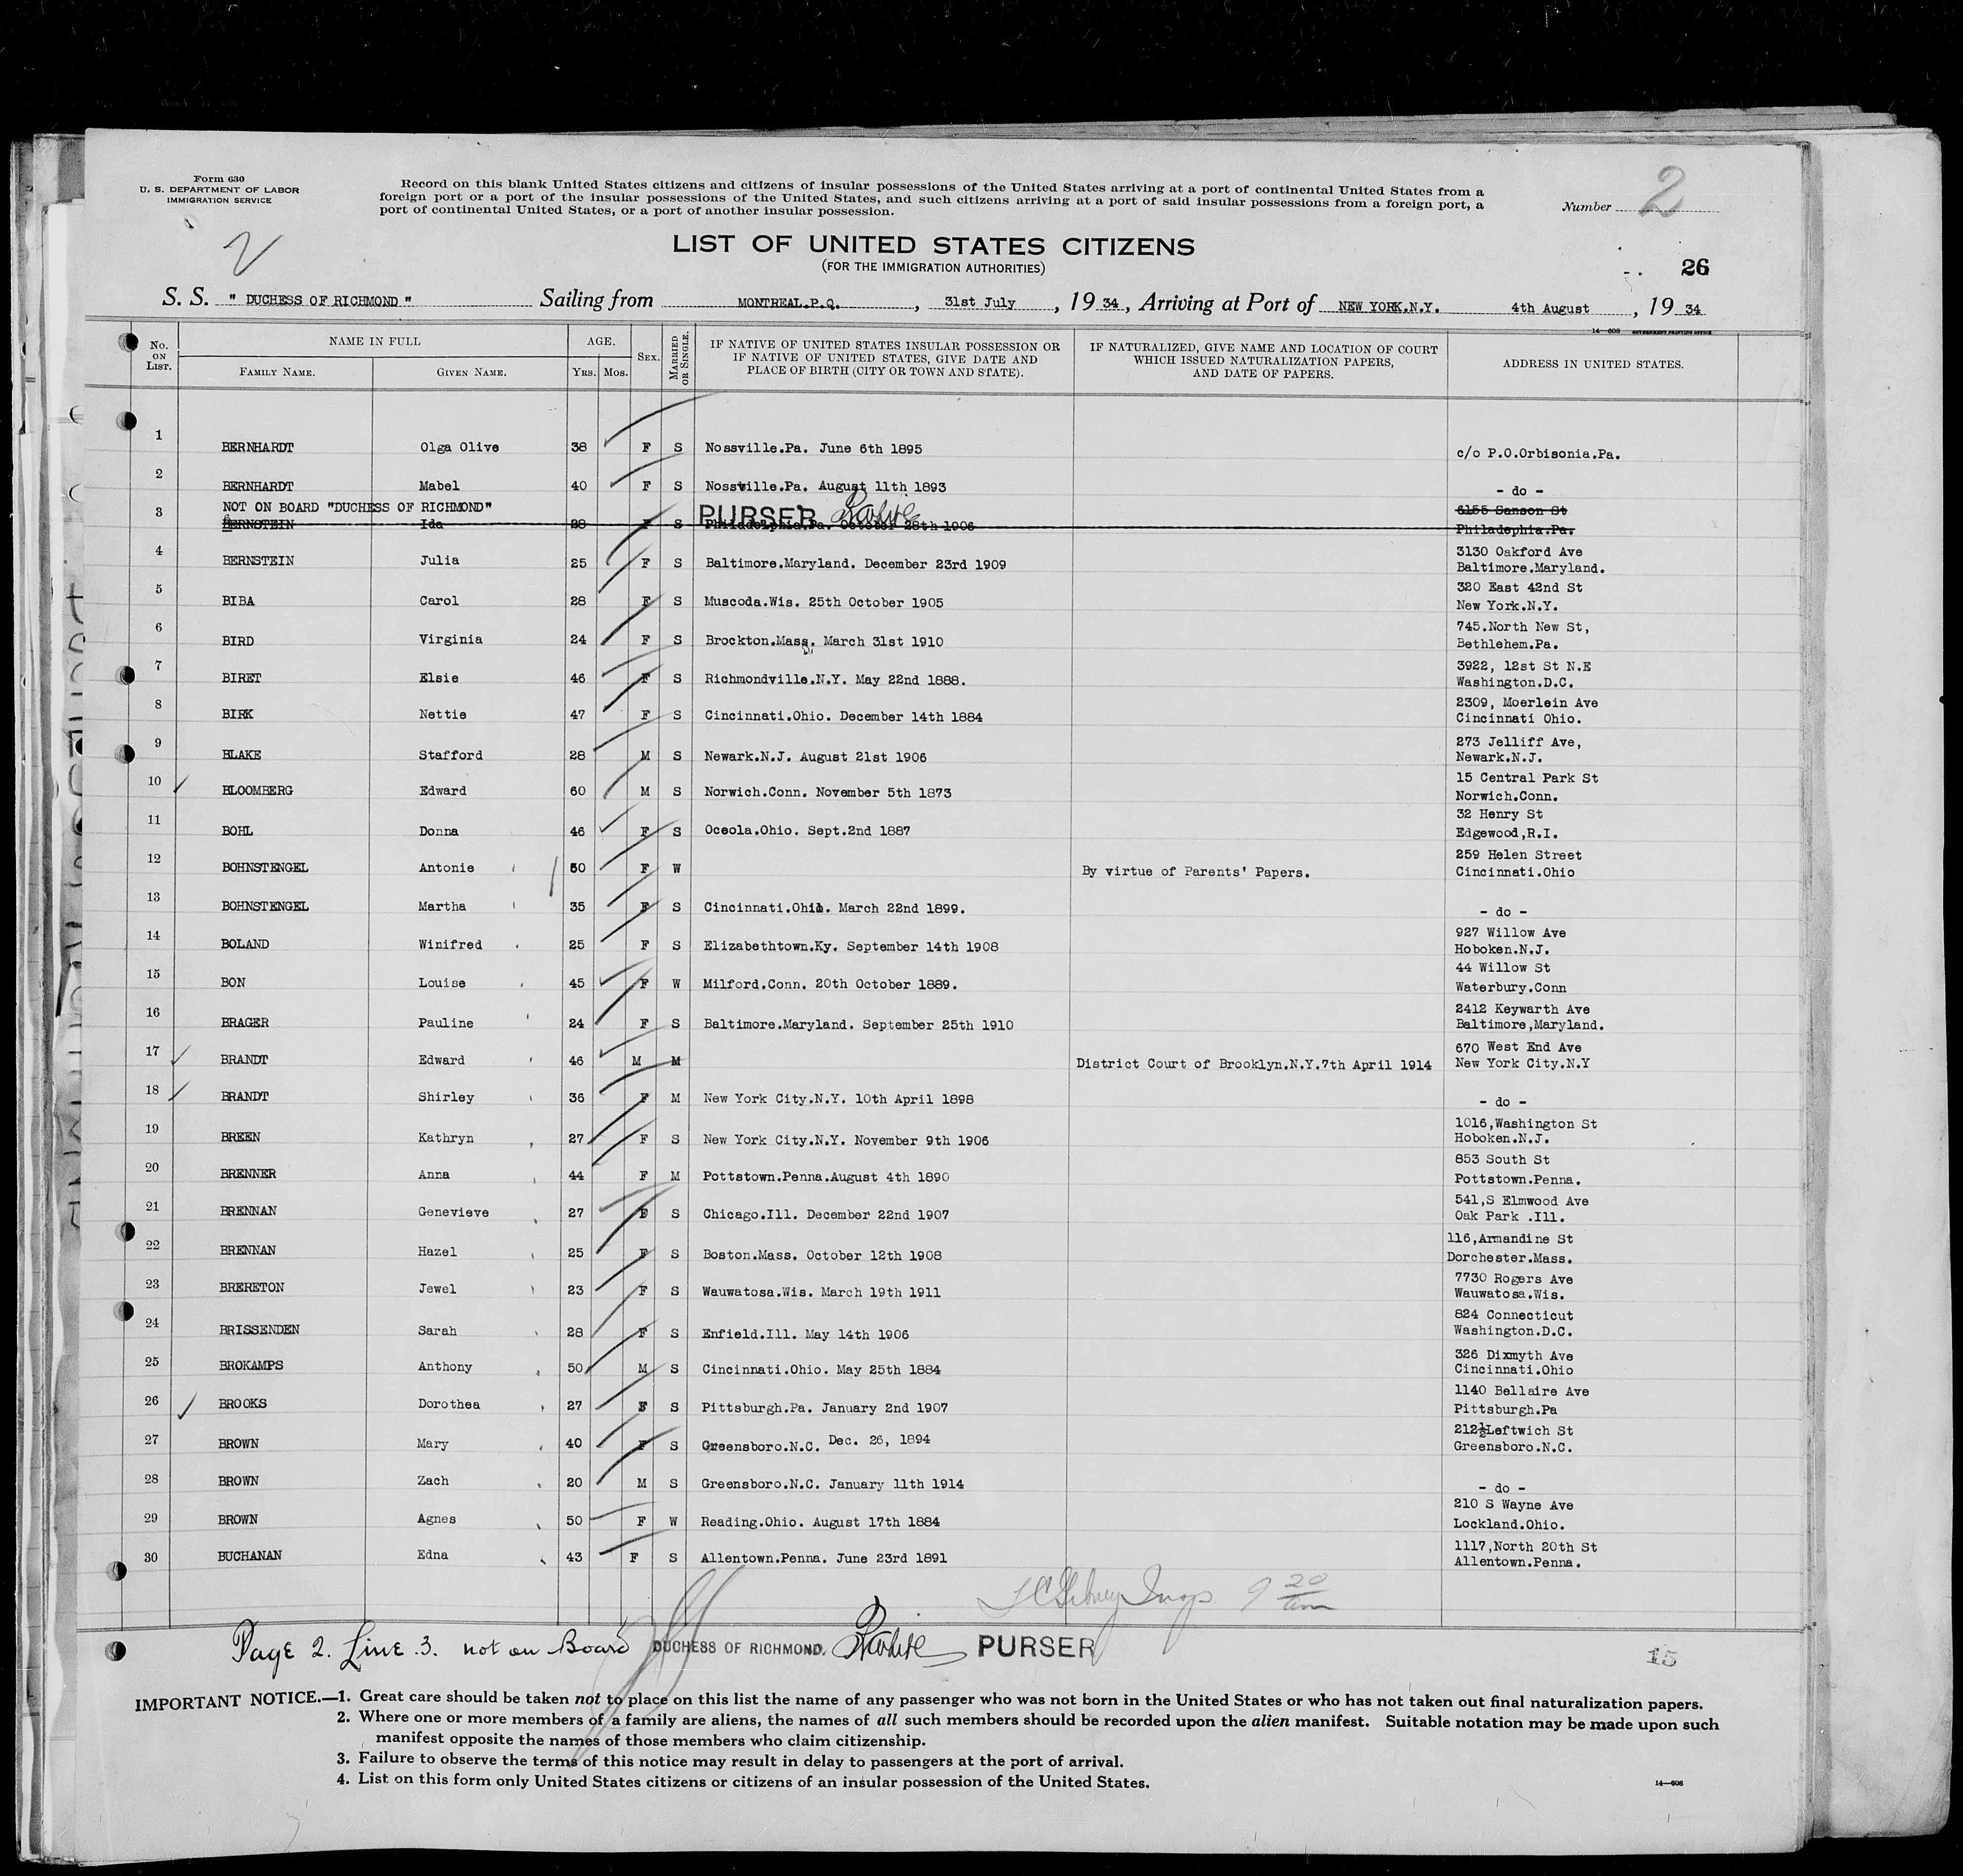 Form 630
U. S. DEPARTMENT OF LABOR
IMMIGRATION SERVICE
Record on this blank United States citizens and citizens of insular possessions of the United States arriving at a port of continental United States from a
foreign port or a port of the insular possessions of the United States, and such citizens arriving at a port of said insular possessions from a foreign port, a
port of continental United States, or a port of another insular possession.
Number 2
2
LIST OF UNITED STATES CITIZENS
(FOR THE IMMIGRATION AUTHORITIES)
26
S. S. " DUCHESS OF RICHMOND " Sailing from MONTREAL.P.Q. , 31st July , 19 34 , Arriving at Port of NEW YORK.N.Y. 4th August , 19 34
14—608 GOVERNMENT PRINTING OFFICE
No. ON LIST. NAME IN FULL FAMILY NAME. GIVEN NAME. AGE. YRS. MOS. SEX. MARRIED OR SINGLE. IF NATIVE OF UNITED STATES INSULAR POSSESSION OR IF NATIVE OF UNITED STATES, GIVE DATE AND PLACE OF BIRTH (CITY OR TOWN AND STATE). IF NATURALIZED, GIVE NAME AND LOCATION OF COURT WHICH ISSUED NATURALIZATION PAPERS, AND DATE OF PAPERS. ADDRESS IN UNITED STATES.
1 BERNHARDT Olga Olive 38 F S Nossville.Pa. June 6th 1895 c/o P.O.Orbisonia.Pa.
2 BERNHARDT Mabel 40 F S Nossville.Pa. August 11th 1893 - do -
NOT ON BOARD "DUCHESS OF RICHMOND" PURSER
3 BERNSTEIN Ida 28 F S Philadelphia.Pa. October 28th 1906 6155 Sanson St
Philadephia.Pa.
4 BERNSTEIN Julia 25 F S Baltimore.Maryland. December 23rd 1909 3130 Oakford Ave
Baltimore.Maryland.
5 BIBA Carol 28 F S Muscoda.Wis. 25th October 1905 320 East 42nd St
New York.N.Y.
6 BIRD Virginia 24 F S Brockton.Mass. March 31st 1910 745.North New St,
Bethlehem.Pa.
7 BIRET Elsie 46 F S Richmondville.N.Y. May 22nd 1888. 3922, 12st St N.E
Washington.D.C.
8 BIRK Nettie 47 F S Cincinnati.Ohio. December 14th 1884 2309, Moerlein Ave
Cincinnati Ohio.
9 BLAKE Stafford 28 M S Newark.N.J. August 21st 1906 273 Jelliff Ave,
Newark.N.J.
10 BLOOMBERG Edward 60 M S Norwich.Conn. November 5th 1873 15 Central Park St
Norwich.Conn.
11 BOHL Donna 46 F S Oceola.Ohio. Sept.2nd 1887 32 Henry St
Edgewood,R.I.
12 BOHNSTENGEL Antonie 50 F W By virtue of Parents' Papers. 259 Helen Street
Cincinnati.Ohio
13 BOHNSTENGEL Martha 35 F S Cincinnati.Ohio. March 22nd 1899. - do -
14 BOLAND Winifred 25 F S Elizabethtown.Ky. September 14th 1908 927 Willow Ave
Hoboken.N.J.
15 BON Louise 45 F W Milford.Conn. 20th October 1889. 44 Willow St
Waterbury.Conn
16 BRAGER Pauline 24 F S Baltimore.Maryland. September 25th 1910 2412 Keywarth Ave
Baltimore,Maryland.
17 BRANDT Edward 46 M M District Court of Brooklyn.N.Y.7th April 1914 670 West End Ave
New York City.N.Y
18 BRANDT Shirley 36 F M New York City.N.Y. 10th April 1898 - do -
19 BREEN Kathryn 27 F S New York City.N.Y. November 9th 1906 1016,Washington St
Hoboken.N.J.
20 BRENNER Anna 44 F M Pottstown.Penna.August 4th 1890 853 South St
Pottstown.Penna.
21 BRENNAN Genevieve 27 F S Chicago.Ill. December 22nd 1907 541,S Elmwood Ave
Oak Park .Ill.
22 BRENNAN Hazel 25 F S Boston.Mass. October 12th 1908 116,Armandine St
Dorchester.Mass.
23 BRERETON Jewel 23 F S Wauwatosa.Wis. March 19th 1911 7730 Rogers Ave
Wauwatosa.Wis.
24 BRISSENDEN Sarah 28 F S Enfield.Ill. May 14th 1906 824 Connecticut
Washington.D.C.
25 BROKAMPS Anthony 50 M S Cincinnati.Ohio. May 25th 1884 326 Dixmyth Ave
Cincinnati.Ohio
26 BROOKS Dorothea 27 F S Pittsburgh.Pa. January 2nd 1907 1140 Bellaire Ave
Pittsburgh.Pa
27 BROWN Mary 40 F S Greensboro.N.C. Dec. 26, 1894 212½Leftwich St
Greensboro.N.C.
28 BROWN Zach 20 M S Greensboro.N.C. January 11th 1914 - do -
29 BROWN Agnes 50 F W Reading.Ohio. August 17th 1884 210 S Wayne Ave
Lockland.Ohio.
30 BUCHANAN Edna 43 F S Allentown.Penna. June 23rd 1891 1117,North 20th St
Allentown.Penna.
9 20 am
Page 2. Line .3. not on Board DUCHESS OF RICHMOND. PURSER
15
IMPORTANT NOTICE.—1. Great care should be taken not to place on this list the name of any passenger who was not born in the United States or who has not taken out final naturalization papers.
2. Where one or more members of a family are aliens, the names of all such members should be recorded upon the alien manifest. Suitable notation may be made upon such
manifest opposite the names of those members who claim citizenship.
3. Failure to observe the terms of this notice may result in delay to passengers at the port of arrival.
4. List on this form only United States citizens or citizens of an insular possession of the United States.
14—608